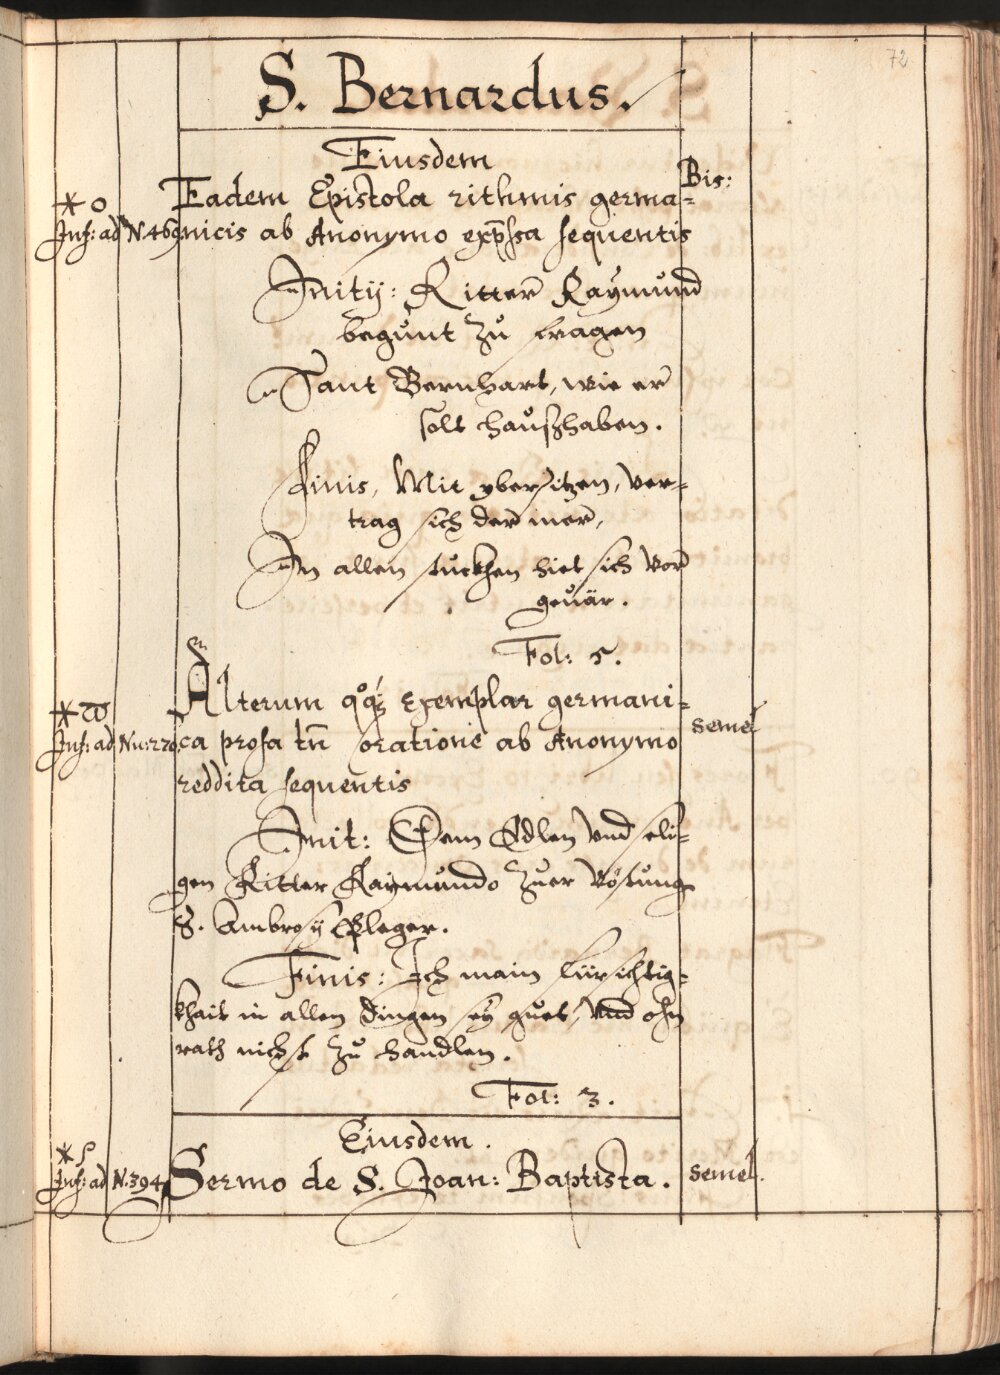 72
S. Bernardus.
Eiusdem
Bis:
* o
Inf: ad N. 469
Eadem Epistola rithmis germa=
nicis ab Anonymo exp̄ssa sequentis
Initij: Ritter Raymund
begunt zů fragen
Sant Bernhart, wie er
solt haußhaben.
Finis, Mit ybersitzen, ver=
trag sich der mer,
In allen stuckhen hiet sich vor
geuär.
Fol: 5.
* w
Inf: ad Nu: 220
semel
Alterum qoqz exemplar germani=
ca prosa tn̄ oratione ab Anonymo
reddita sequentis
Init: Dem Edlen vnd seli=
gen Ritter Raymundo zuer Vöstung
S. Ambrosij Pfleger.
Finis: Ich main fürsichtig=
khait in allen dingen sey guet, vnd ohn
rath nichst zů handlen.
Fol: 3.
Eiusdem.
* s
Inf: ad N. 394
Sermo de S. Joan: Baptista.
semel.